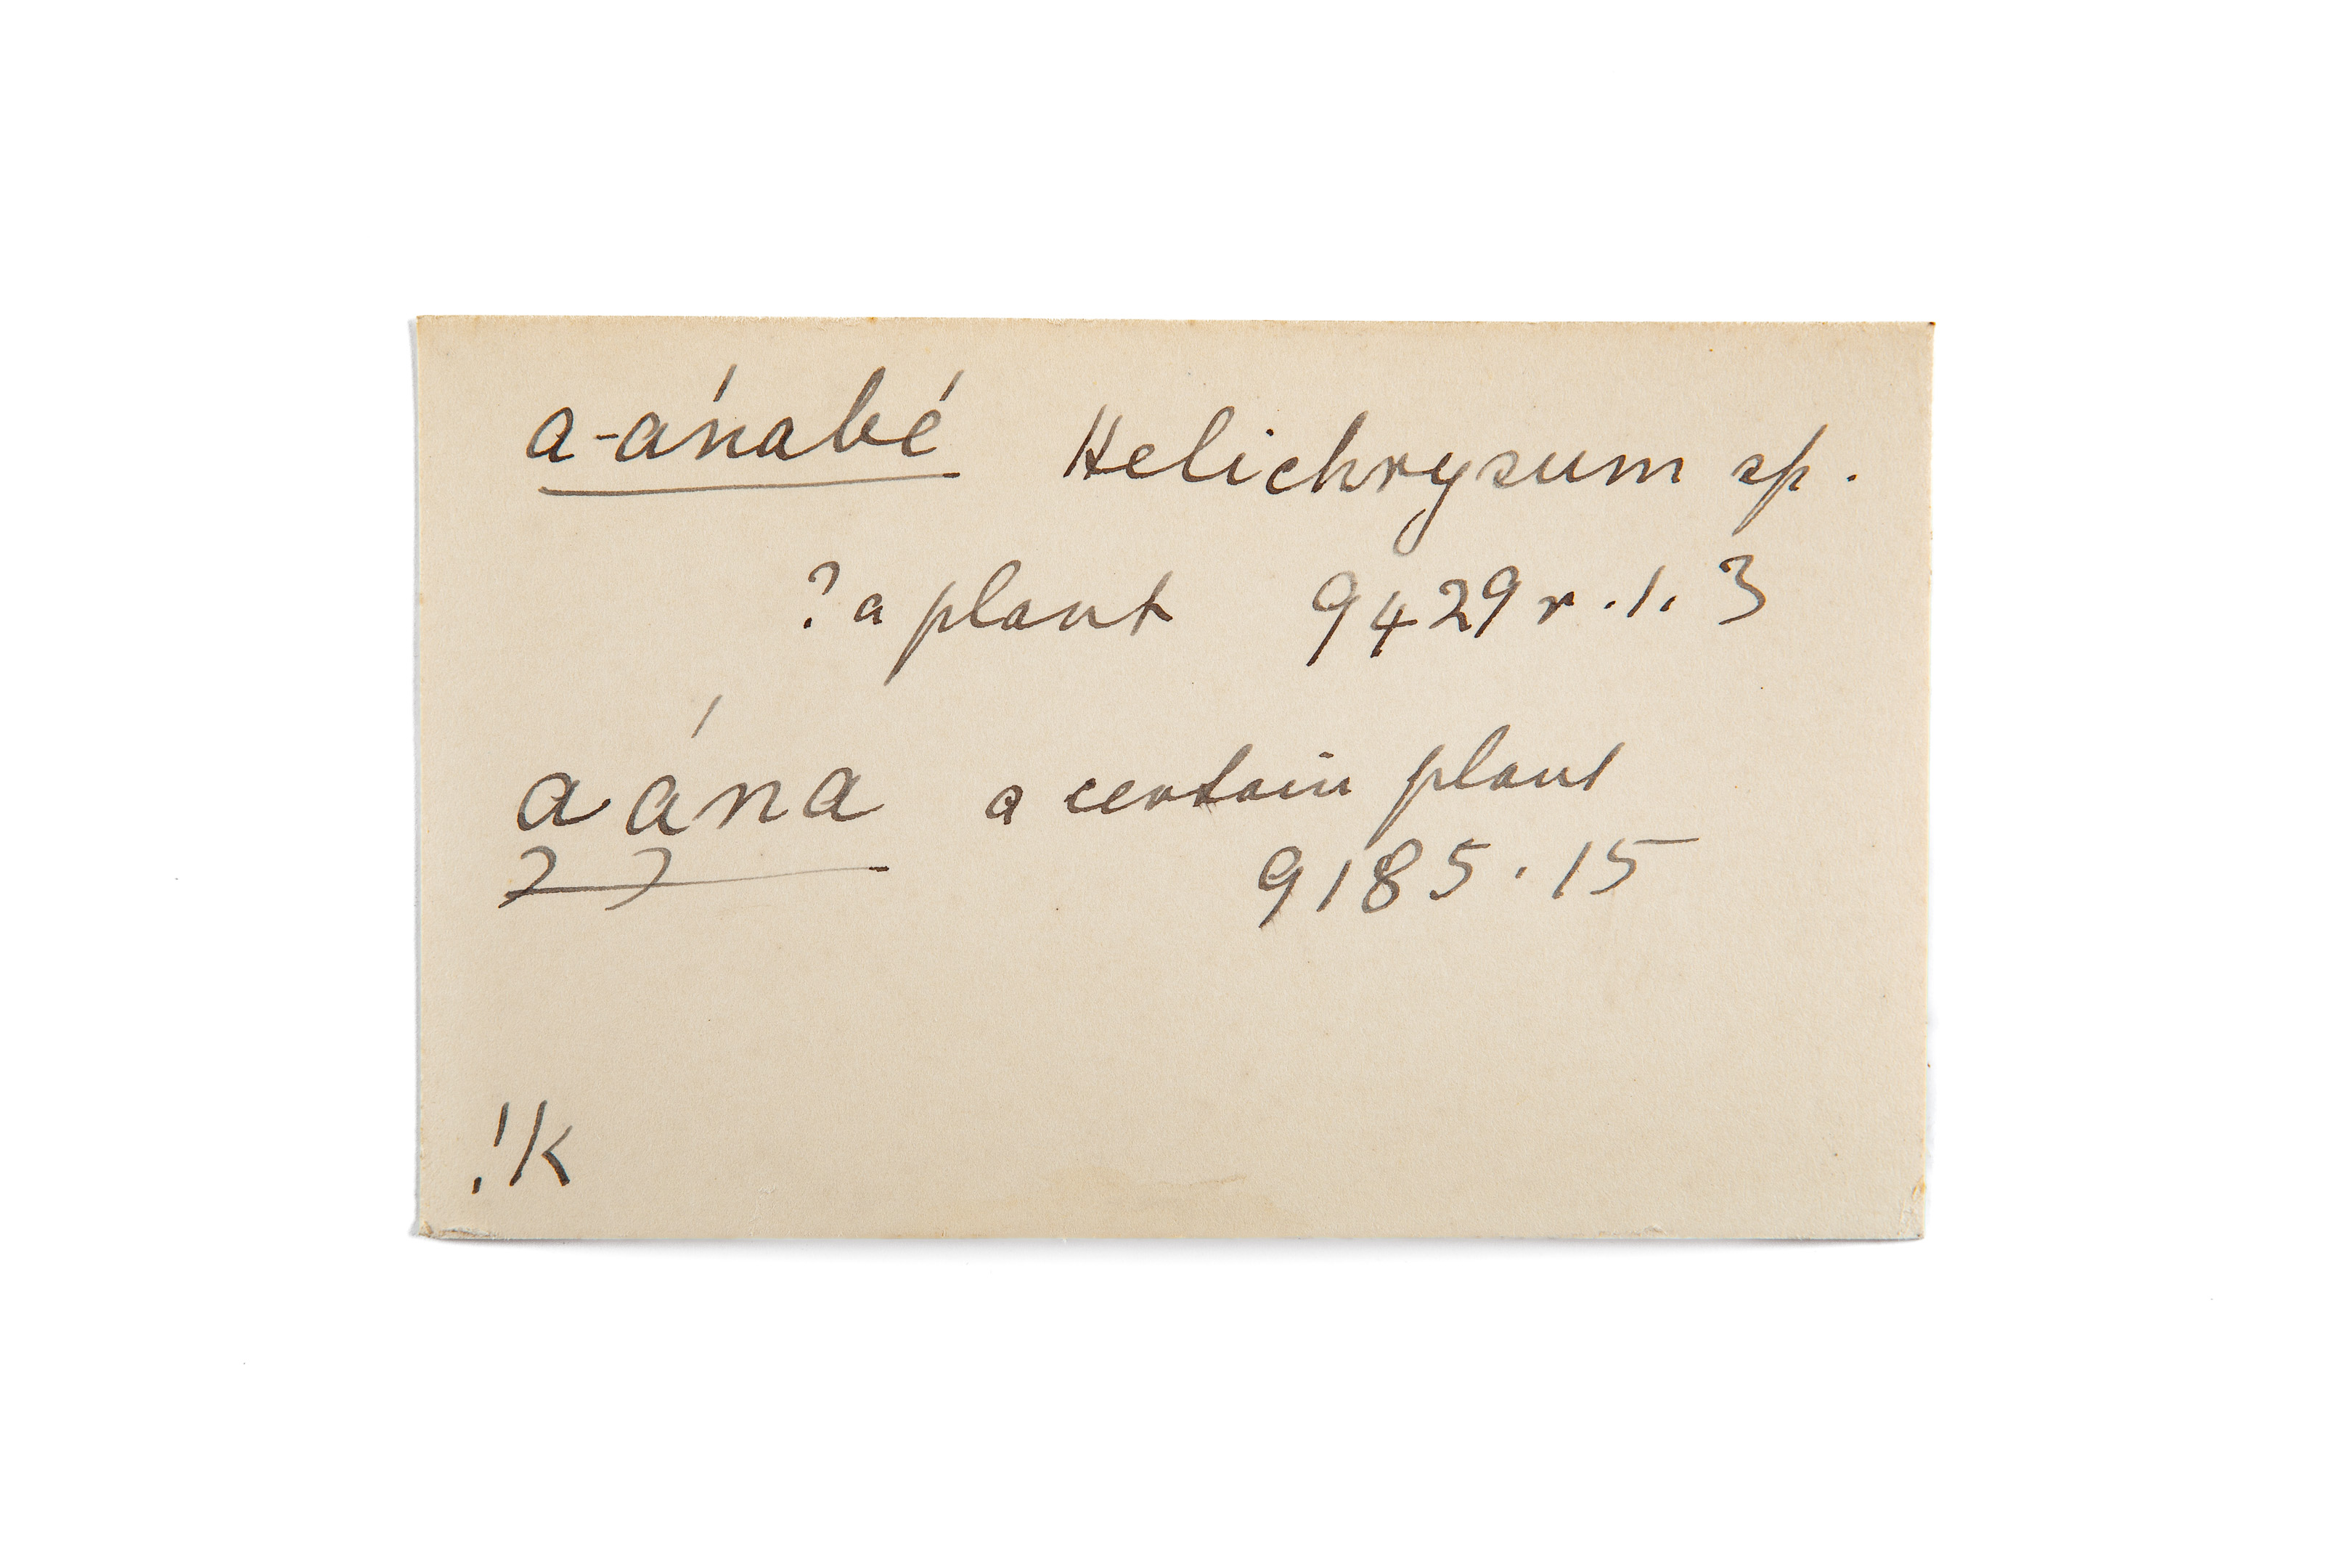 a-ánabé Helichrysum sp.
? a plant 9429 r. 1. 3
a ána a certain plant
9185. 15
!k